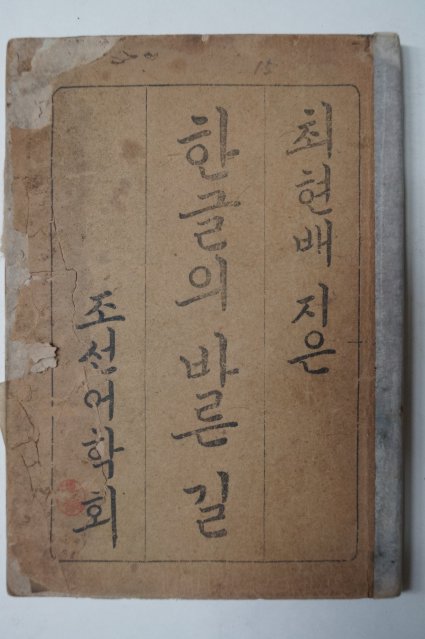 최현배 지은
한글의 바른 길
조선어학회
15